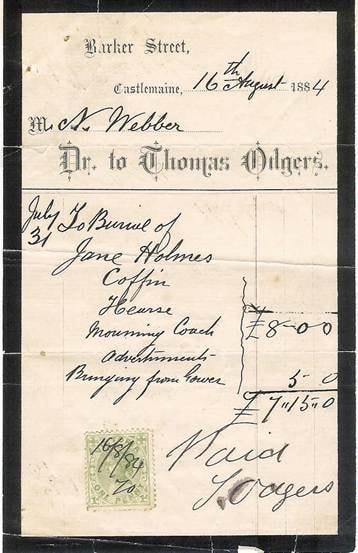 Barker Street,
Castlemaine, 16th August 1884
Mr. N. Webber
Dr. to Thomas Odgers.
July 31 To Burial of
Jane Holmes
Coffin
Hearse
Mourning Coach £8-0 0
Advertisments
Bringing from Gower 5-0
£7"15"0
16/8/84
TO
Paid
T. Odgers